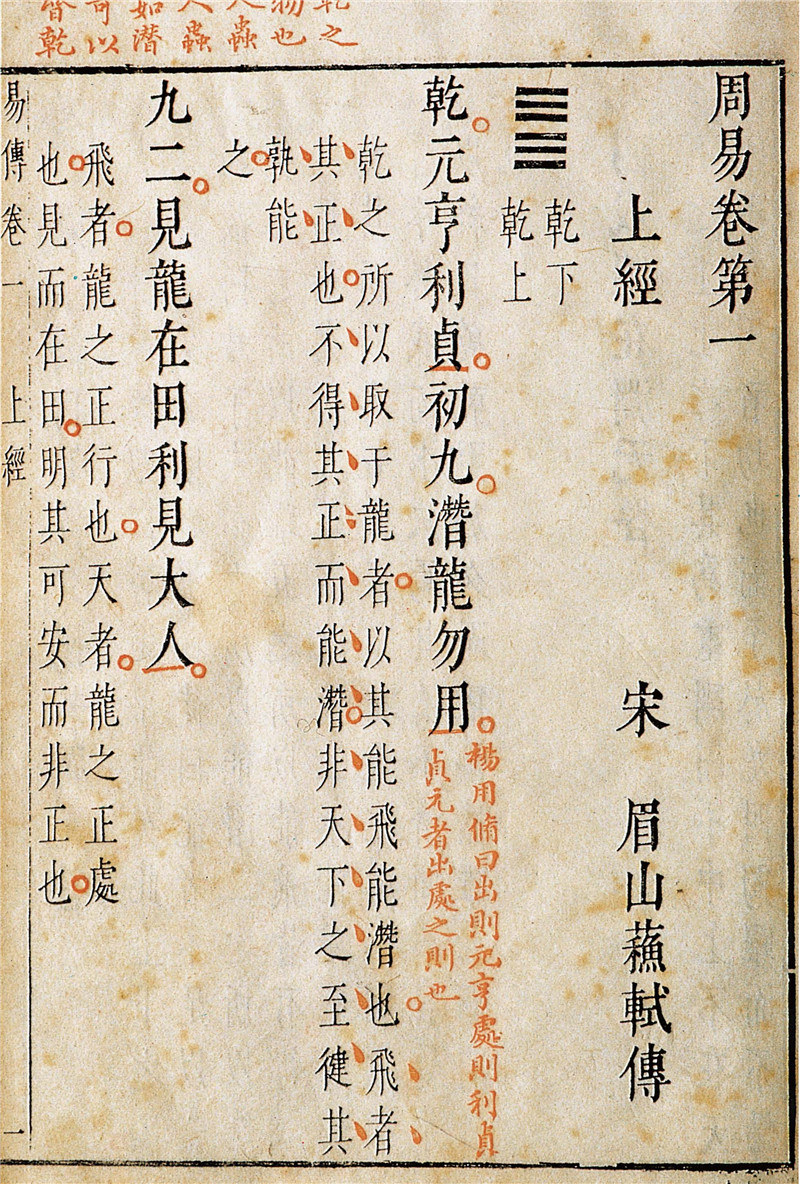 乾之
物也
蟲
蟲
如潛
以
乾
周易卷第一
上經 宋 眉山蘓軾傳
䷀ 乾下
乾上
乾元亨利貞初九濳龍勿用
楊用脩曰出則元亨處則利貞
貞元者出處之則也
乾之所以取于龍者以其能飛能濳也飛者
其正也不得其正而能濳非天下之至健其
孰能
之
九二見龍在田利見大人
飛者龍之正行也天者龍之正處
也見而在田明其可安而非正也
易傳卷一 上經 一